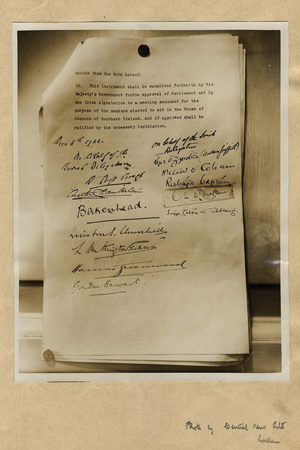 months from the date hereof.
18. This instrument shall be submitted forthwith by His
Majesty's Government for the approval of Parliament and by
the Irish signatories to a meeting summoned for the
purpose of the members elected to sit in the House
of Commons of Southern Ireland, and if approved shall be
ratified by the necessary legislation.
Dec 6th 1921.
On behalf of the
British Delegation
D Lloyd George
Austen Chamberlain
Birkenhead.
Winston S. Churchill
L. Worthington-Evans
Hamar Greenwood
Gordon Hewart.
On behalf of the Irish
Delegation
Art Ó Gríobhtha
Mícheál Ó Coileáin
Riobárd Bartún
Photo by Central News Ltd
London